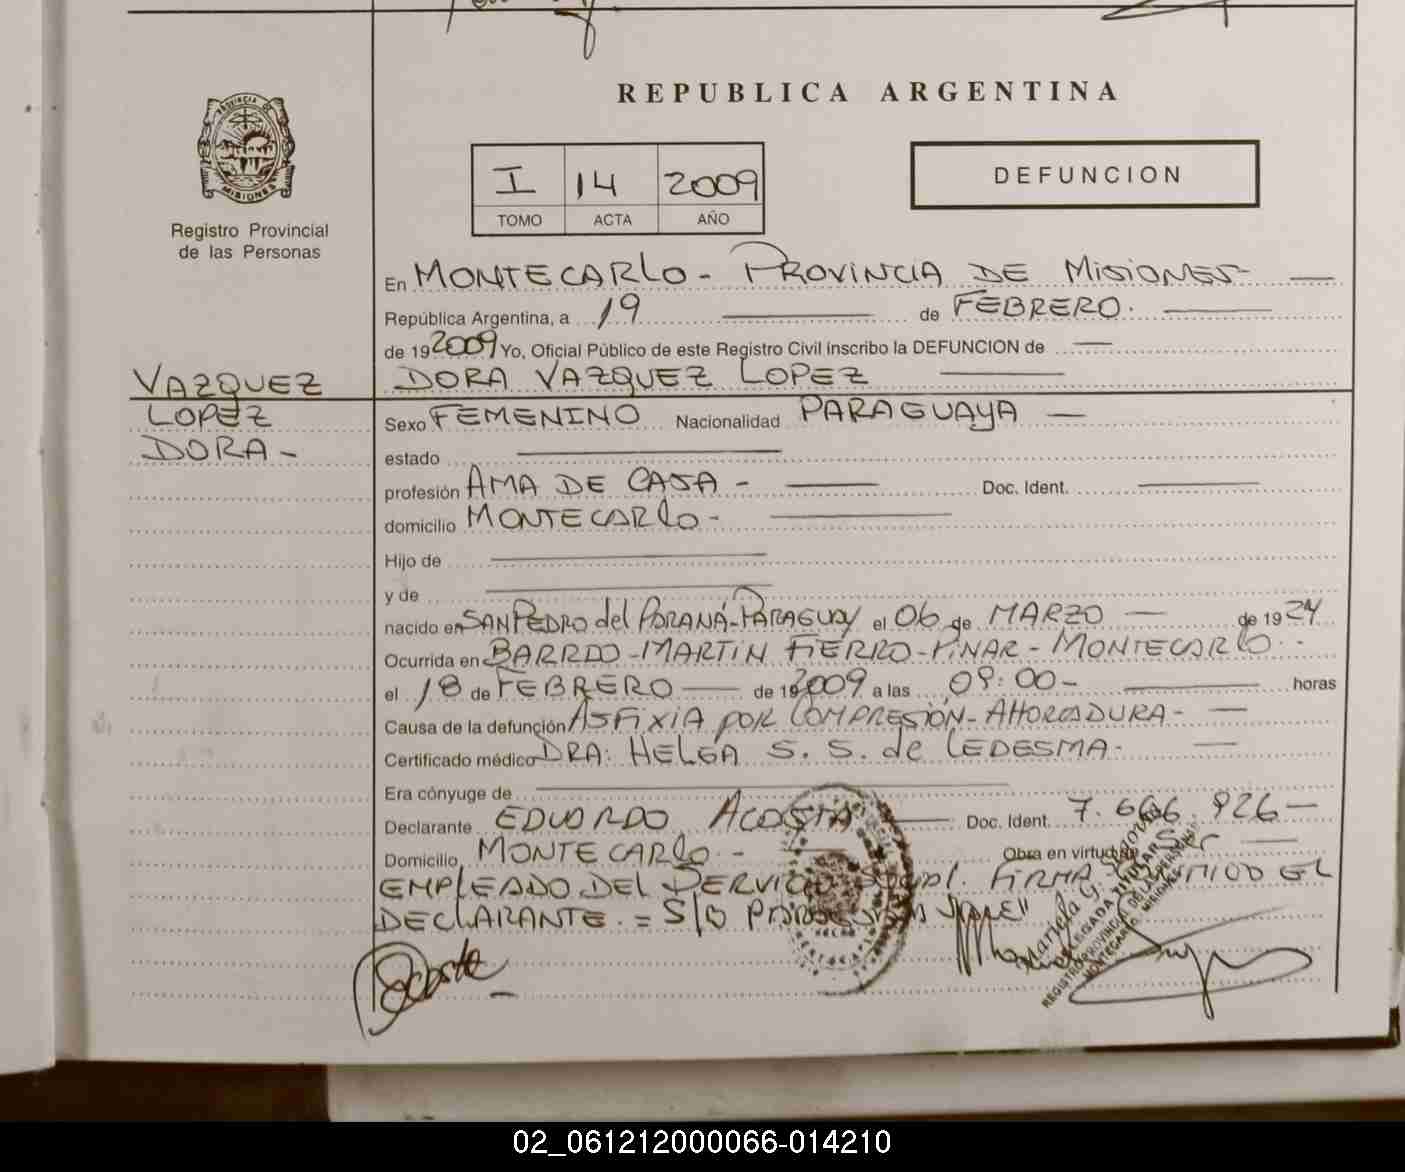 REPUBLICA ARGENTINA
PROVINCIA DE
MISIONES
Registro Provincial
de las Personas
I 14 2009
TOMO ACTA AÑO
DEFUNCION
En MONTECARLO - PROVINCIA DE MISIONES
República Argentina, a 19 de FEBRERO.
de 19 2009 Yo, Oficial Público de este Registro Civil inscribo la DEFUNCION de
DORA VAZQUEZ LOPEZ
VAZQUEZ
LOPEZ
DORA -
Sexo FEMENINO Nacionalidad PARAGUAYA
estado
profesión AMA DE CASA - Doc. Ident.
domicilio MONTECARLO -
Hijo de
y de
nacido en SAN PEDRO del PARANÁ - PARAGUAY el 06 de MARZO de 1924
Ocurrida en BARRIO - MARTIN FIERRO - PINAR - MONTECARLO
el 18 de FEBRERO de 19 2009 a las 09:00 - horas
Causa de la defunción ASFIXIA POR COMPRESIÓN - AHORCADURA -
Certificado médico DRA: HELGA S. S. de LEDESMA -
Era cónyuge de
Declarante EDUARDO ACOSTA Doc. Ident. 7.666.926
Domicilio MONTECARLO - Obra en virtud de Ser
EMPLEADO DEL SERVICIO FIRMA EL
DECLARANTE. = S/B
Acosta
Mariela G.
DELEGADA TITULAR
REGISTRO PROVINCIAL DE LAS PERSONAS
MONTECARLO MISIONES
02_061212000066-014210